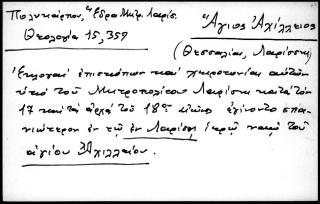 Πολυκάρπου, Ἕδρα Μητρ. Λαρίσ.
Θεολογία 15, 357
Ἅγιος Ἀχίλλειος
(Θεσσαλίας, Λαρίσσης)
Ἐκλογαὶ ἐπισκόπων καὶ χειροτονίαι αὐτῶν
ὑπὸ τοῦ Μητροπολίτου Λαρίσης κατὰ τὸν
17 καὶ τὰς ἀρχὰς τοῦ 18ου αἰῶνος ἐγίνοντο σπα-
νιώτερον ἐν τῷ ἐν Λαρίσῃ ἱερῷ ναῷ τοῦ
ἁγίου Ἀχιλλείου.